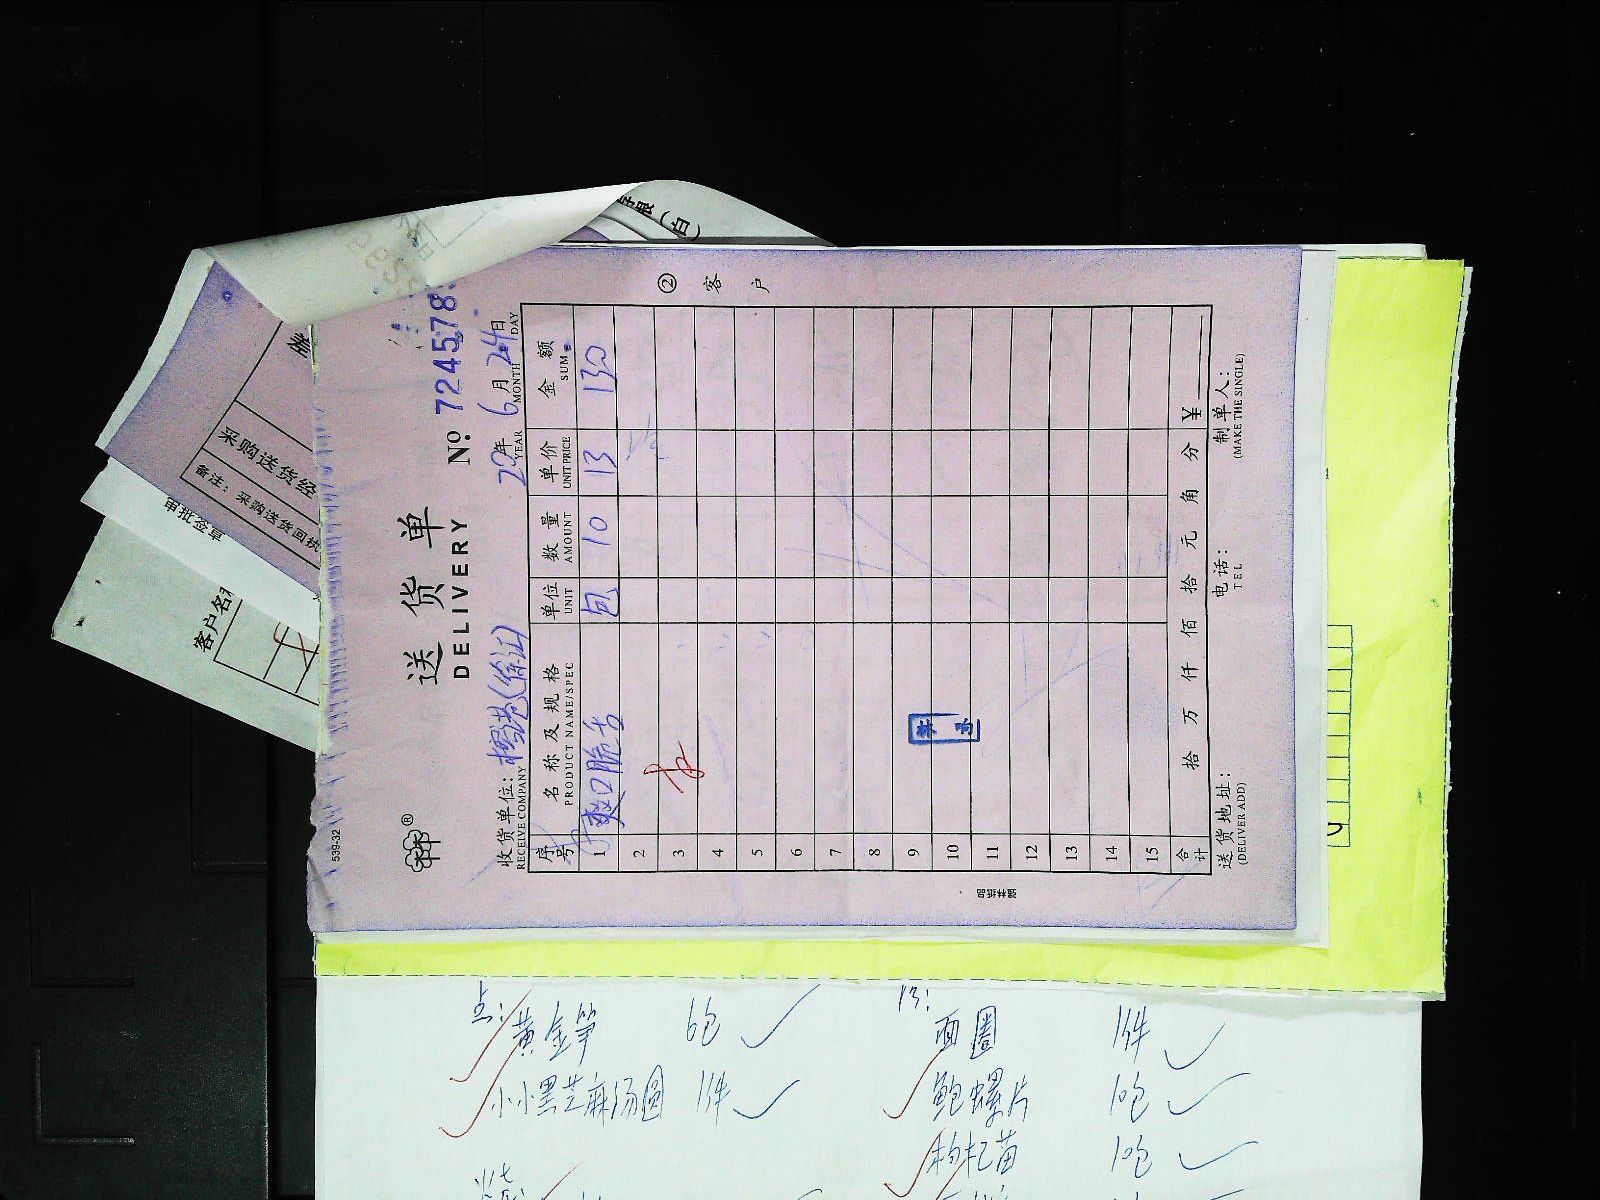 539-32
送货单
DELIVERY
No. 724578
20年 6月 24日
YEAR MONTH DAY
收货单位:
RECEIVE COMPANY
② 客户
序号 名称及规格 单位 数量 单价 金额
PRODUCT NAME/SPEC UNIT AMOUNT UNIT PRICE SUM
1 爽口脆舌 包 10 13 130
2
3
4
5
6
7
8
9
10
11
12
13
14
15
合计 拾 万 仟 佰 拾 元 角 分 ¥
送货地址: 电话: 制单人:
(DELIVER ADD) TEL (MAKE THE SINGLE)
采购送货经
备注: 采购送货回执
审批签章
客户名称
存根(白)
点: 黄金笋 6包
小小黑芝麻汤圆 1件
面圈 1件
鲍螺片 10包
枸杞苗 10包